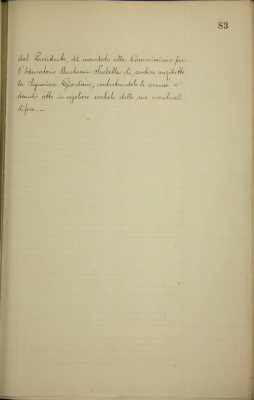 83
dal Presidente, dà mandato alla Commissione per
l'Educatorio Duchessa Isabella di sentire anzitutto
la Signorina Giordano, contestandole le accuse e
dando atto in regolare verbale delle sue eventuali
difese. —